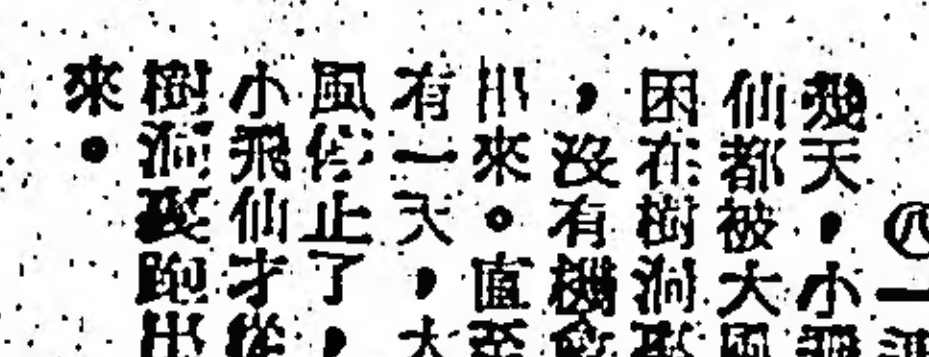 ㈧一
幾天，小飛
仙都被大風
困在樹洞裏
，沒有機會
出來。直至
有一天，大
風停止了，
小飛仙才從
樹洞裏跑出
來。